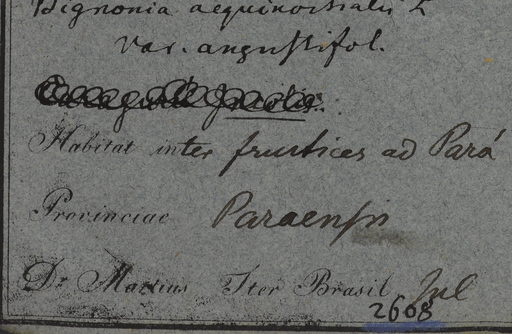 Bignonia aequinoctialis L
Var. angustifol.
Habitat inter frutices ad Pará
Provinciae Paraensis
Dr. Martius Iter Brasil Jul
2608